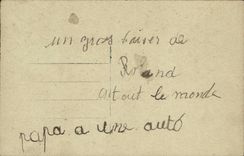 un gros baiser de
Roland
a tout le monde
papa a une auto